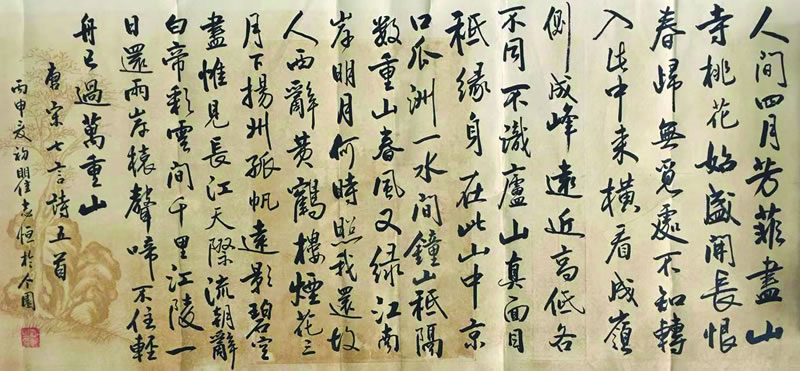 人間四月芳菲盡山
寺桃花始盛開長恨
春歸無覓處不知轉
入此中來橫看成嶺
側成峰遠近高低各
不同不識廬山真面目
祗緣身在此山中京
口瓜洲一水間鐘山祗隔
數重山春風又綠江南
岸明月何時照我還故
人西辭黃鶴樓煙花三
月下揚州孤帆遠影碧空
盡惟見長江天際流朝辭
白帝彩雲間千里江陵一
日還兩岸猿聲啼不住輕
舟已過萬重山
唐宋七言詩五首
丙申夏初瞿志恒於園